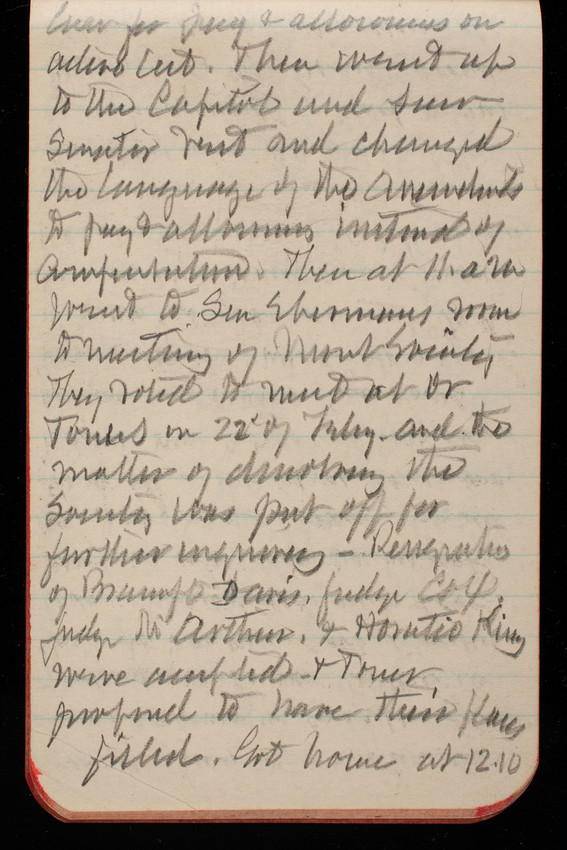 for pay & allowances on
active list. Then went up
to the Capitol and saw
Senator and changed
the language of the Amendmts
to pay & allowances instead of
Then at 11 a m
went to Gen room
to meeting of Mont Society
They voted to meet at Dr
Toners on 22d of Feby. and the
matter of dissolving the
Society was put off for
further inquiries - Resignation
of Davis, Judge Cox,
Judge Mc Arthur, & Horatio King
were accepted - & Toner
proposed to have their places
filled. Got home at 12.10